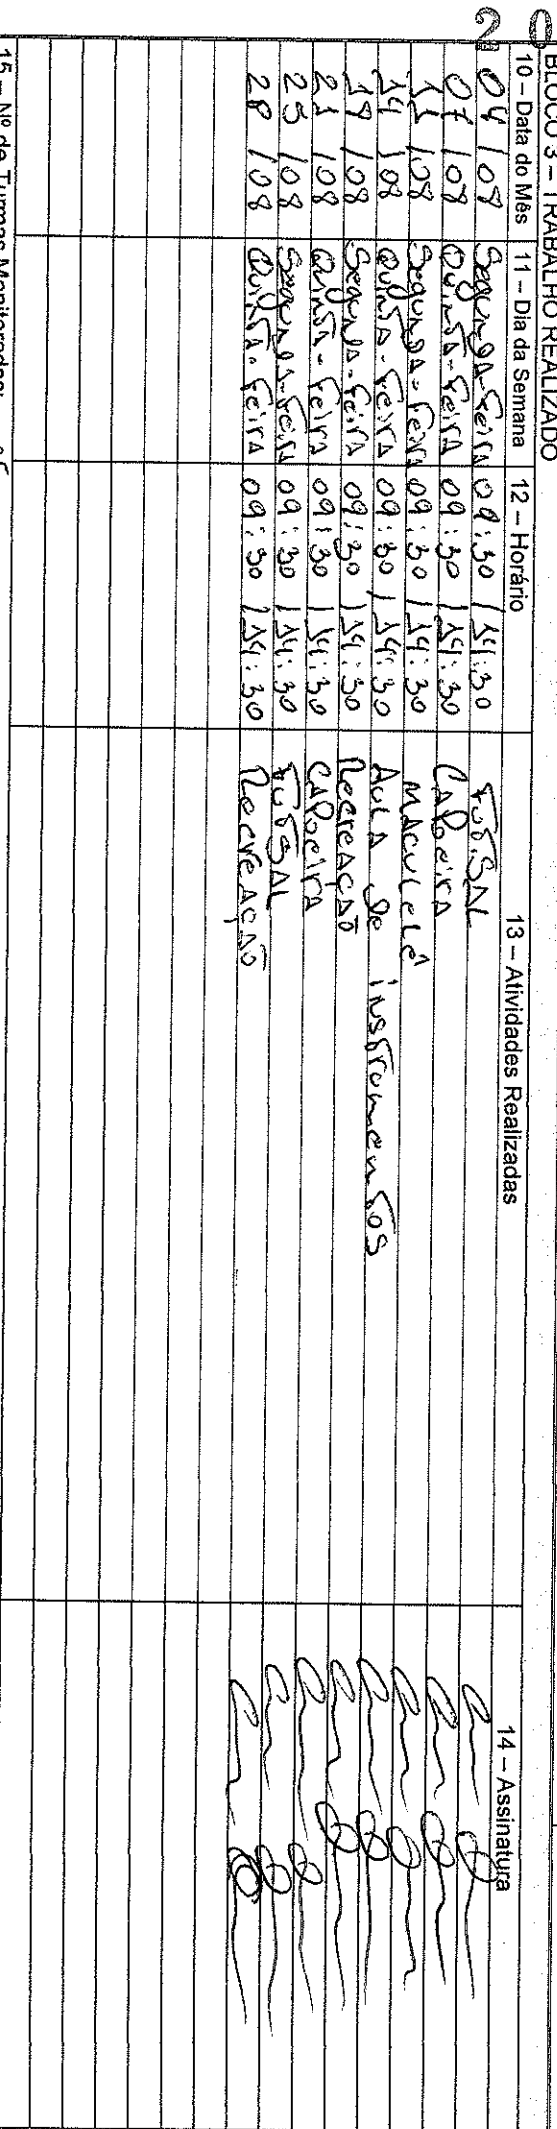 20
BLOCO 3 – TRABALHO REALIZADO
10 – Data do Mês 11 – Dia da Semana 12 – Horário 13 – Atividades Realizadas 14 – Assinatura
04 / 08 Segunda-feira 09:30 / 14:30 FutSAL
07 / 08 Quinta-feira 09:30 / 14:30 CAPoeirA
11 / 08 Segunda-feira 09:30 / 14:30 MACULELÊ
14 / 08 Quinta-feira 09:30 / 14:30 AULA de instrumentos
18 / 08 Segunda-feira 09:30 / 14:30 RecreAÇÃO
21 / 08 Quinta-feira 09:30 / 14:30 CAPoeirA
25 / 08 Segunda-feira 09:30 / 14:30 FutSAL
28 / 08 Quinta-feira 09:30 / 14:30 RecreAÇÃO
15 – Nº de Turmas Monitoradas: